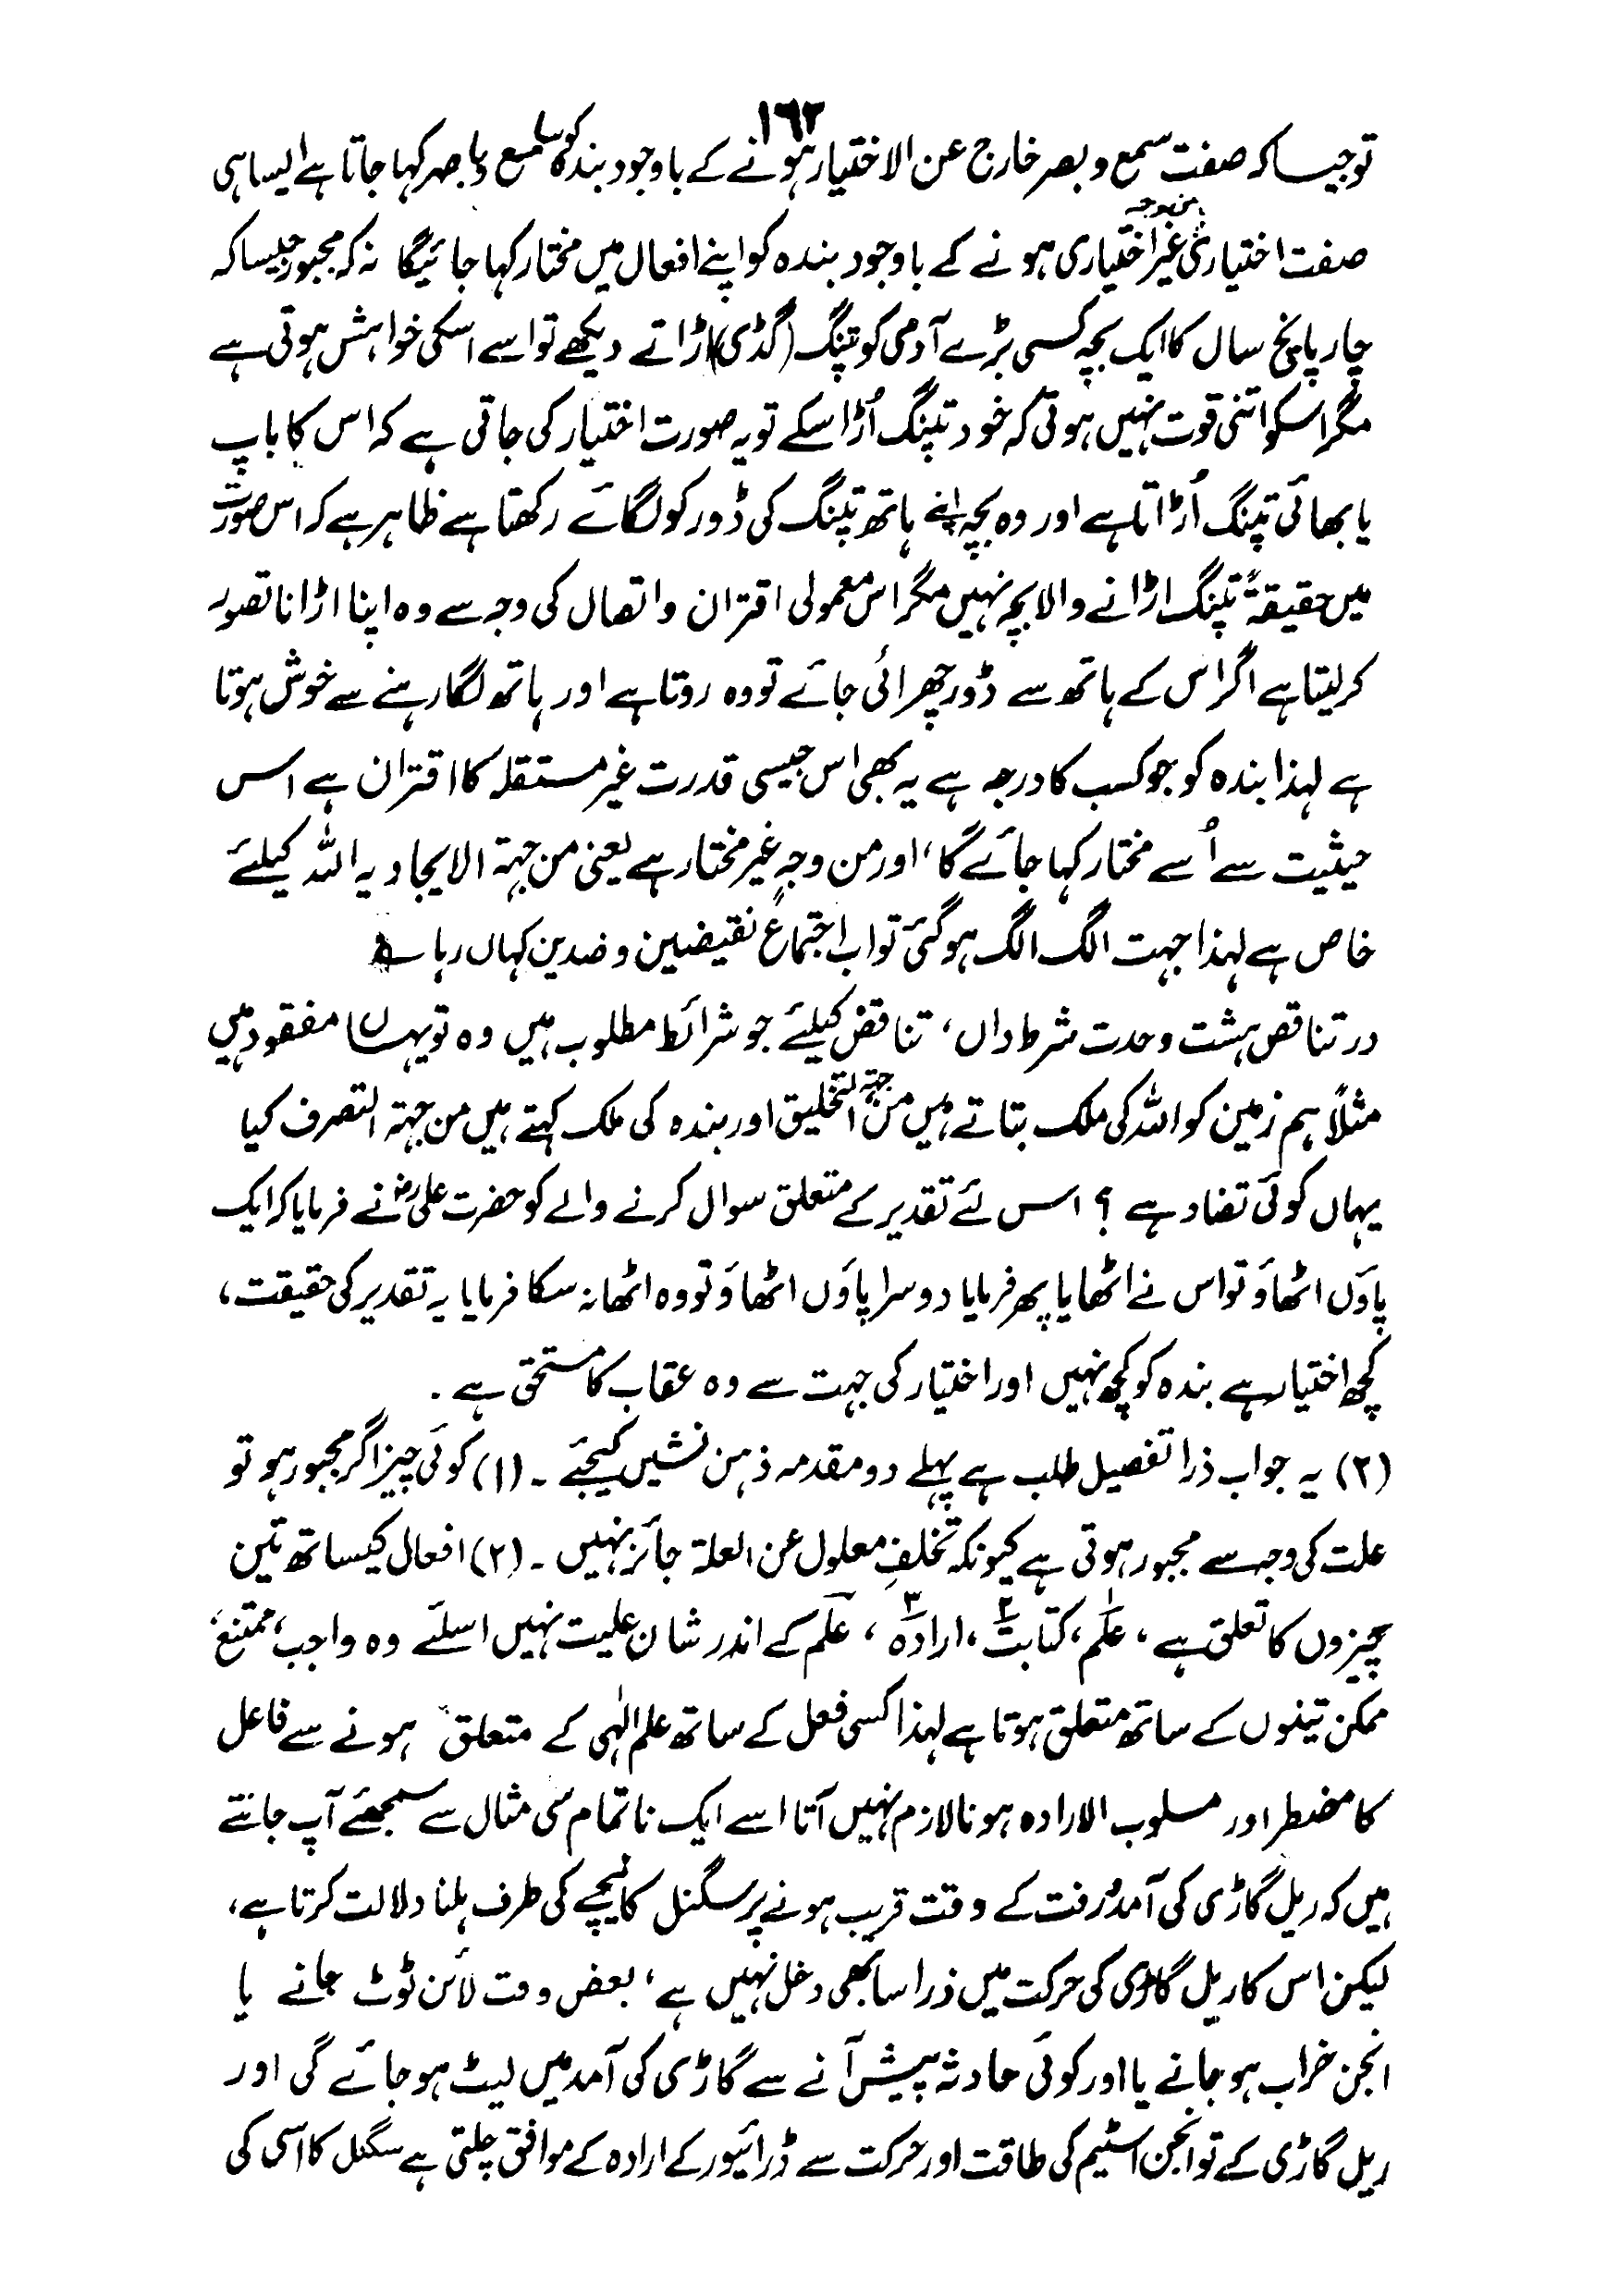 ١٦٢
تو جیسا کہ صفت سمع و بصر خارج عن الاختیار ہونے کے باوجود بندہ کو سامع و باصر کہا جاتا ہے ایسا ہی
صفت اختیاری من وجہ غیر اختیاری ہونے کے باوجود بندہ کو اپنے افعال میں مختار کہا جائیگا نہ کہ مجبور جیسا کہ
چار پانچ سال کا ایک بچہ کسی بڑے آدمی کو پتنگ (گڈی) اڑاتے دیکھے تو اسے اسکی خواہش ہوتی ہے
مگر اسکو اتنی قوت نہیں ہوتی کہ خود پتنگ اُڑا سکے تو یہ صورت اختیار کی جاتی ہے کہ اس کا باپ
یا بھائی پتنگ اُڑاتا ہے اور وہ بچہ اپنے ہاتھ پتنگ کی ڈور کو لگائے رکھتا ہے ظاہر ہے کہ اس صورت
میں حقیقۃً پتنگ اڑانے والا بچہ نہیں مگر اس معمولی اقتران و اتصال کی وجہ سے وہ اپنا اڑانا تصور
کرلیتا ہے اگر اس کے ہاتھ سے ڈور چھڑائی جائے تو وہ روتا ہے اور ہاتھ لگا رہنے سے خوش ہوتا
ہے لہذا بندہ کو جو کسب کا درجہ ہے یہ بھی اس جیسی قدرت غیر مستقلہ کا اقتران ہے اس
حیثیت سے اُسے مختار کہا جائے گا، اور من وجہٍ غیر مختار ہے یعنی من جہۃ الایجاد یہ اللہ کیلئے
خاص ہے لہذا جہت الگ الگ ہوگئی تو اب اجتماع نقیضین و ضدین کہاں رہا
در تناقض ہشت وحدت شرط داں، تناقض کیلئے جو شرائط مطلوب ہیں وہ تو یہاں مفقود ہیں
مثلاً ہم زمین کو اللہ کی ملک بتاتے ہیں من جہۃ التخلیق اور بندہ کی ملک کہتے ہیں من جہۃ التصرف کیا
یہاں کوئی تضاد ہے ؟ اس لئے تقدیر کے متعلق سوال کرنے والے کو حضرت علیؓ نے فرمایا کہ ایک
پاؤں اٹھاؤ تو اس نے اٹھایا پھر فرمایا دوسرا پاؤں اٹھاؤ تو وہ اٹھا نہ سکا فرمایا یہ تقدیر کی حقیقت،
کچھ اختیار ہے بندہ کو کچھ نہیں اور اختیار کی جہت سے وہ عقاب کا مستحق ہے ۔
(۲) یہ جواب ذرا تفصیل طلب ہے پہلے دو مقدمہ ذہن نشیں کیجئے ۔ (۱) کوئی چیز اگر مجبور ہو تو
علت کی وجہ سے مجبور ہوتی ہے کیونکہ تخلفِ معلول عن العلۃ جائز نہیں ۔ (۲) افعال کیساتھ تین
چیزوں کا تعلق ہے ، علم۱، کتابت۲، ارادہ۳ ، علم کے اندر شان علیت نہیں اسلئے وہ واجب، ممتنع،
ممکن تینوں کے ساتھ متعلق ہوتا ہے لہذا کسی فعل کے ساتھ علم الٰہی کے متعلق ہونے سے فاعل
کا مضطر اور مسلوب الارادہ ہونا لازم نہیں آتا اسے ایک ناتمام سی مثال سے سمجھئے آپ جانتے
ہیں کہ ریل گاڑی کی آمد و رفت کے وقت قریب ہونے پر سگنل کا نیچے کی طرف ہلنا دلالت کرتا ہے،
لیکن اس کا ریل گاڑی کی حرکت میں ذرا سا بھی دخل نہیں ہے، بعض وقت لائن ٹوٹ جانے یا
انجن خراب ہو جانے یا اور کوئی حادثہ پیش آنے سے گاڑی کی آمد میں لیٹ ہو جائے گی اور
ریل گاڑی کے تو انجن اسٹیم کی طاقت اور حرکت سے ڈرائیور کے ارادہ کے موافق چلتی ہے سگنل کا اسی کی